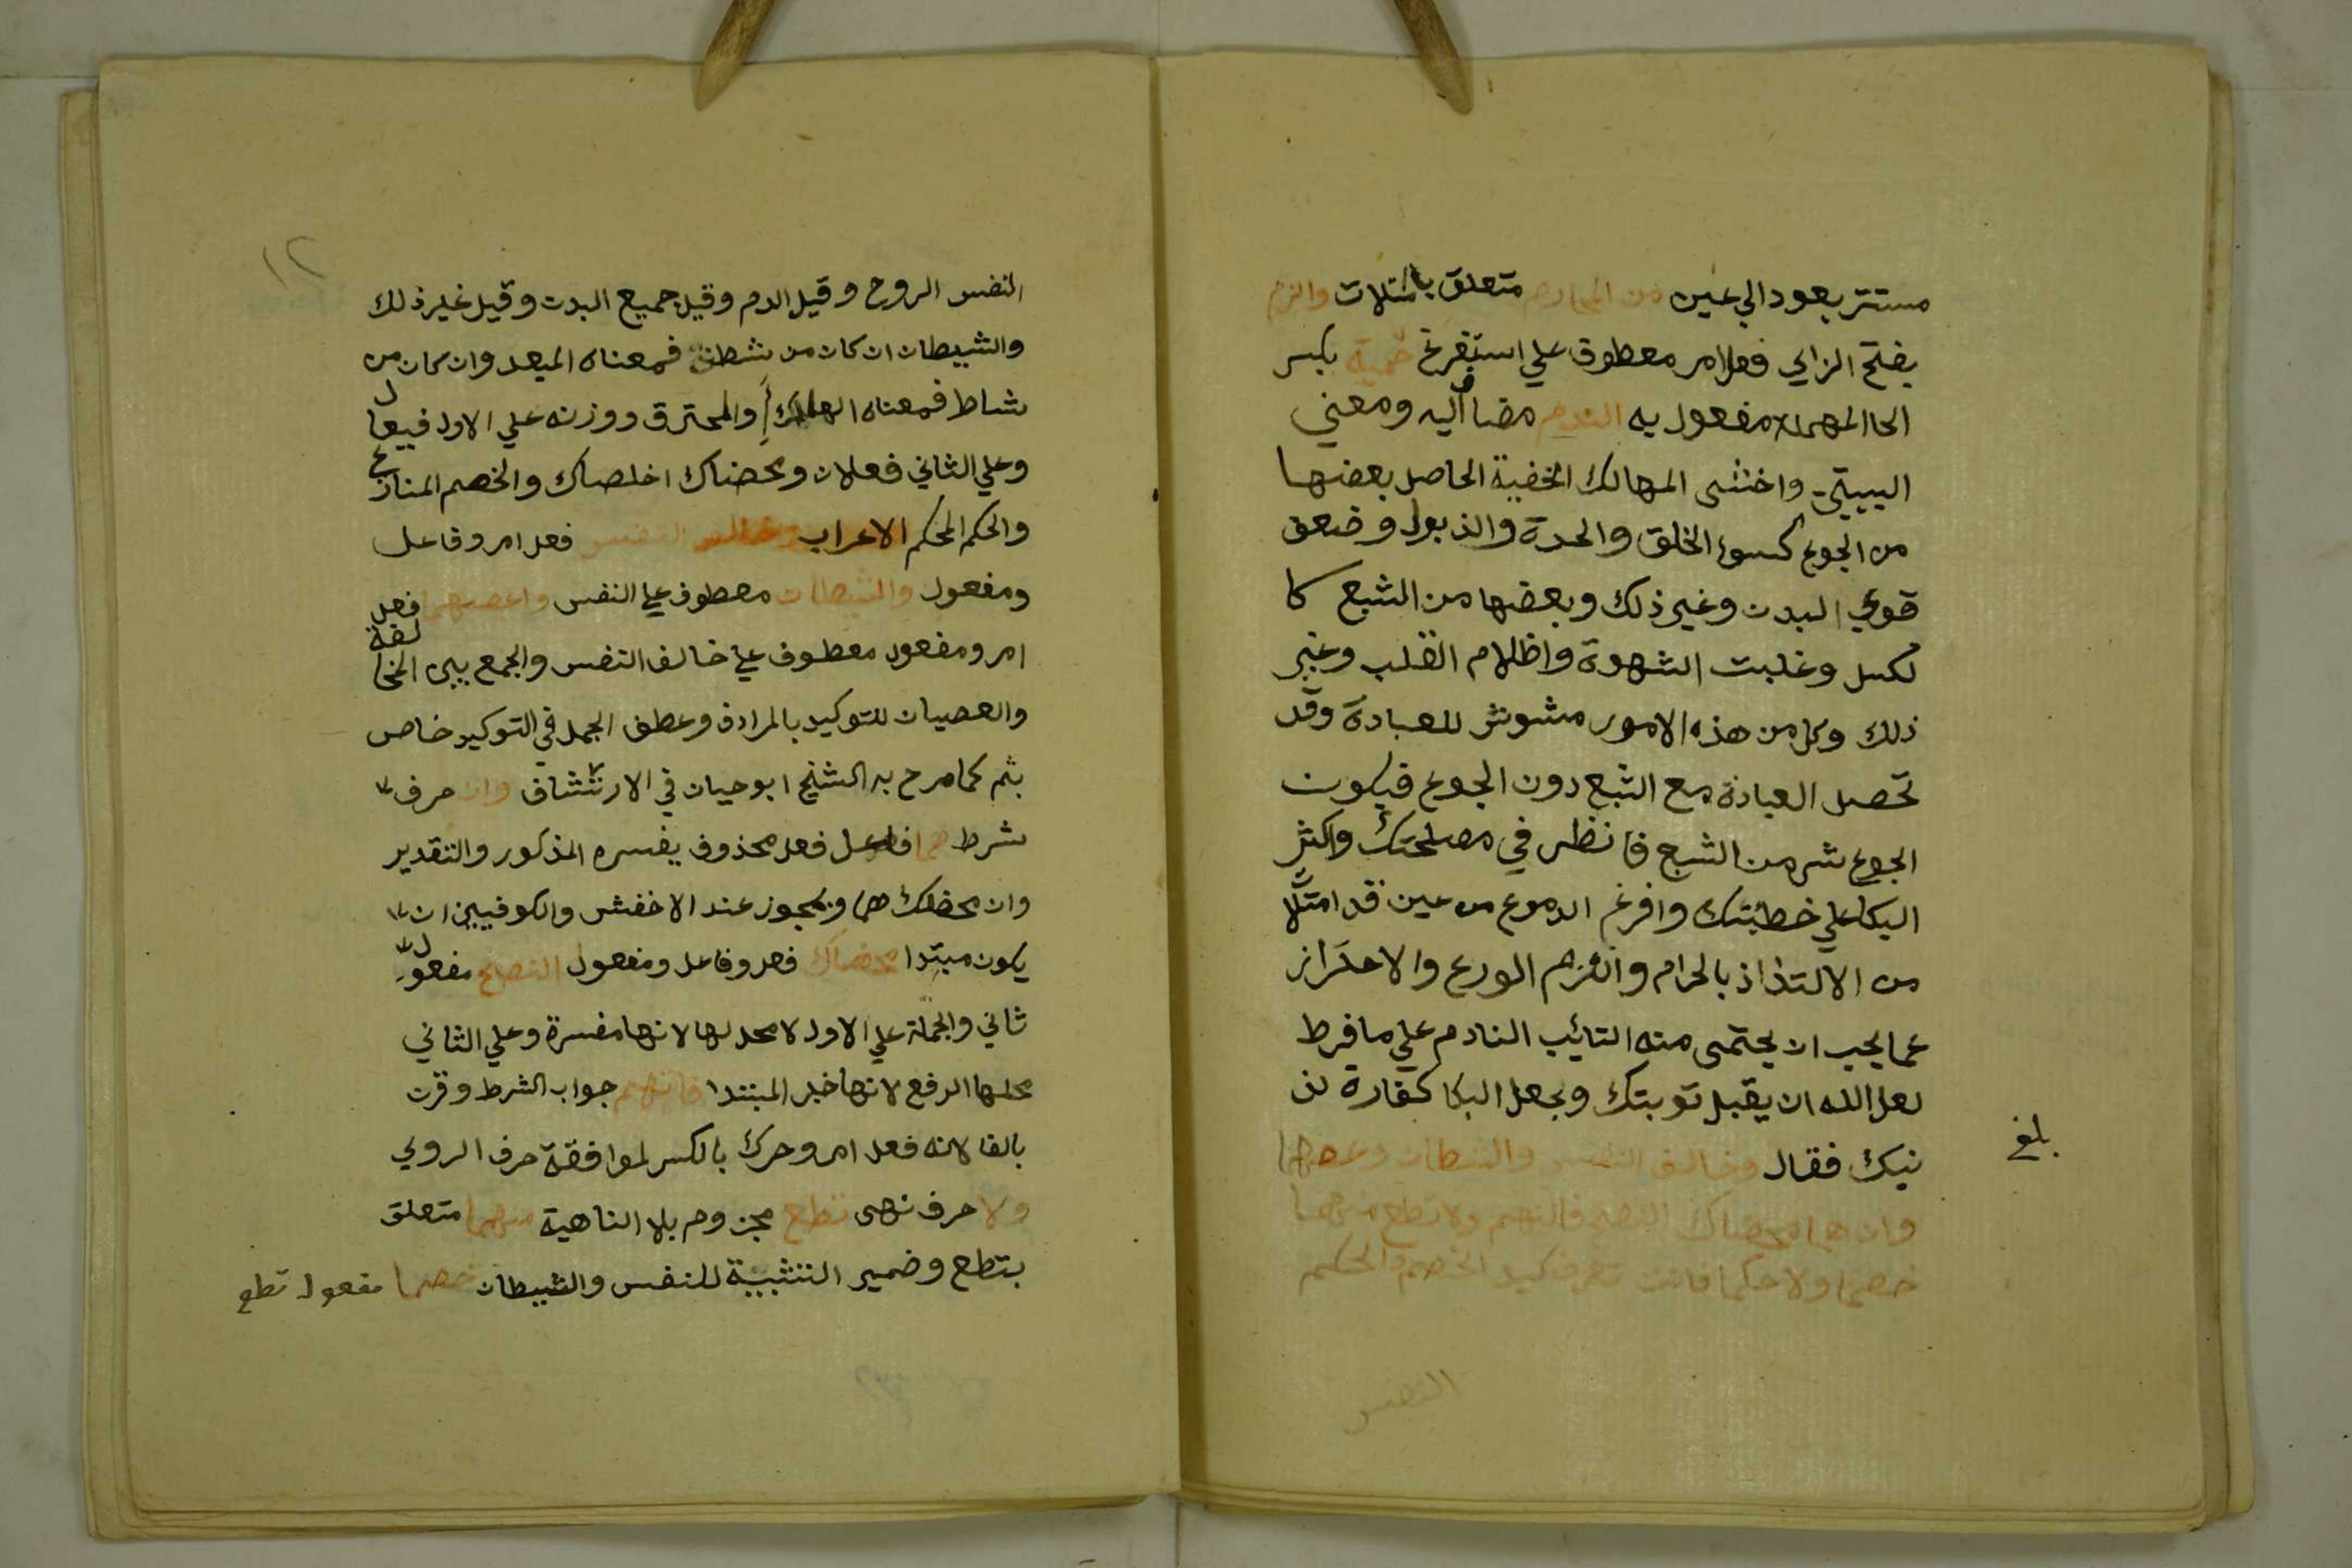 مستتر يعود الي عين من المحارم متعلق بامتلات والزم
بفتح الزاي فعل امر معطوف علي استفرغ حمية بكسر
الحا المهملة مفعول به الندم مضاف اليه ومعني
البيتين واخشى المهالك الخفية الحاصل بعضها
من الجوع كسوء الخلق والحدة والذبول وضعف
قوي البدن وغير ذلك وبعضها من الشبع كا
لكسل وغلبت الشهوة واظلام القلب وغير
ذلك وكل من هذه الامور مشوش للعبادة وقد
تحصل العبادة مع الشبع دون الجوع فيكون
الجوع شر من الشبع فانظر في مصلحتك واكثر
البكا علي خطيتك وافرغ الدموع من عين قد امتلا
من الالتذاذ بالحرام والزم الورع والاحتراز
عما يجب ان يحتمى منه التائب النادم علي ما فرط
لعل الله ان يقبل توبتك ويجعل البكا كفارة لذ
نبك فقال وخالف النفس والشيطان وعصهما
وان هما محضاك النصح فاتهم ولا تطع منهما
خصما ولا حكما فانت تعرف كيد الخصم والحكم
النفس
بلغ
١٢
النفس الروح وقيل الدم وقيل جميع البدن وقيل غير ذلك
والشيطان ان كان من شطن فمعناه المبعد وان كان من
شاط فمعناه الهالك والمحترق ووزنه علي الاول فيعال
وعلي الثاني فعلان ومحضاك اخلصاك والخصم المنازع
والحكم المحكم الاعراب وخالف النفس فعل امر وفاعل
ومفعول والشيطان معطوف علي النفس واعصهما فعل
امر ومفعول معطوف علي خالف النفس والجمع بين المخالفة
والعصيان للتوكيد بالمرادف وعطف الجمل في التوكيد خاص
بثم كما صرح به الشيخ ابو حيان في الارتشاف وان حرف
شرط هما فاعل فعل محذوف يفسره المذكور والتقدير
وان محضك هما ويجوز عند الاخفش والكوفيين ان
يكون مبتدا محضاك فعل وفاعل ومفعول النصح مفعول
ثاني والجملة علي الاول لا محل لها لانها مفسرة وعلي الثاني
محلها الرفع لانها خبر المبتدا فاتهم جواب الشرط وقرن
بالفا لانه فعل امر وحرك بالكسر لموافقة حرف الروي
ولا حرف نهى تطع مجزوم بلا الناهية منهما متعلق
بتطع وضمير التثنية للنفس والشيطان خصما مفعول تطع